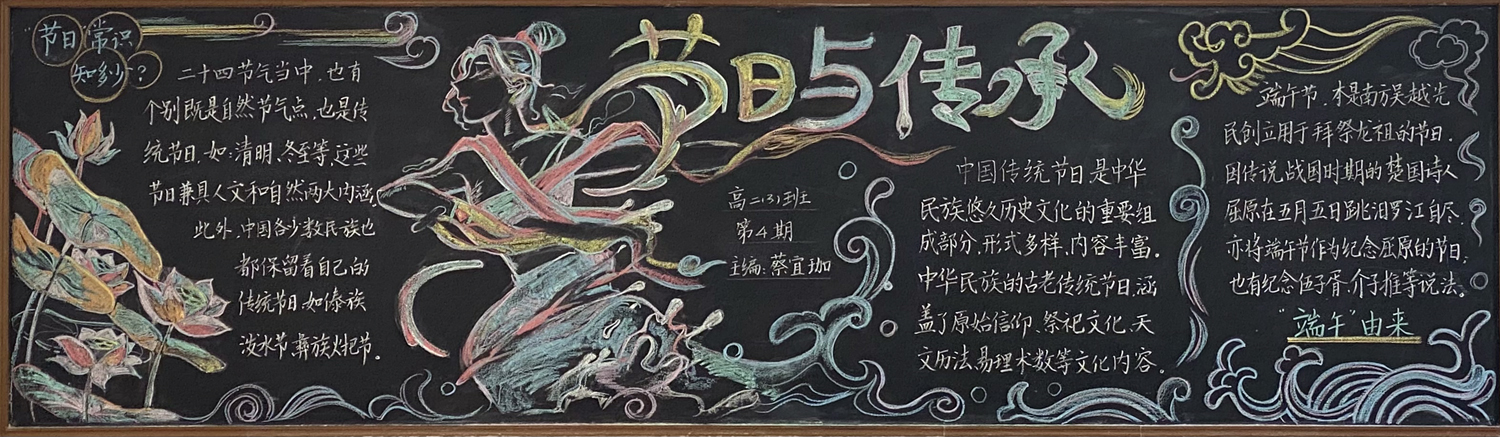 "节日常识
知多少?
二十四节气当中,也有
个别既是自然节气点,也是传
统节日,如:清明、冬至等,这些
节日兼具人文和自然两大内涵,
此外,中国各少数民族也
都保留着自己的
传统节日,如傣族
泼水节,彝族火把节。
节日与传承
高二(3)班
第4期
主编:蔡宜珈
中国传统节日,是中华
民族悠久历史文化的重要组
成部分,形式多样,内容丰富。
中华民族的古老传统节日,涵
盖了原始信仰、祭祀文化、天
文历法、易理术数等文化内容。
端午节,本是南方吴越先
民创立用于拜祭龙祖的节日.
因传说战国时期的楚国诗人
屈原在五月五日跳汨罗江自尽.
亦将端午节作为纪念屈原的节日;
也有纪念伍子胥、介子推等说法。
"端午"由来